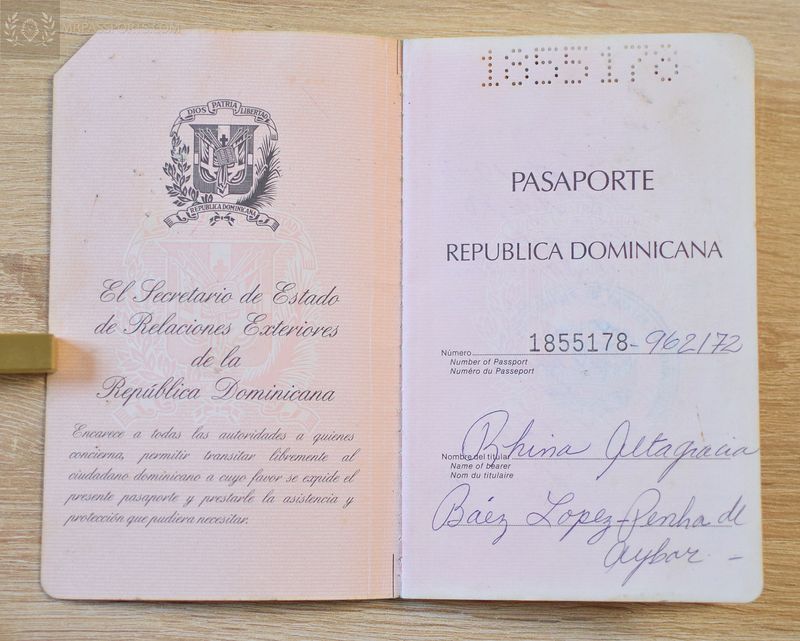 MRPASSPORTS.COM
DIOS PATRIA LIBERTAD
REPUBLICA DOMINICANA
El Secretario de Estado
de Relaciones Exteriores
de la
República Dominicana
Encarece a todas las autoridades a quienes
concierna, permitir transitar libremente al
ciudadano dominicano a cuyo favor se expide el
presente pasaporte y prestarle la asistencia y
protección que pudiera necesitar.
1855178
PASAPORTE
REPUBLICA DOMINICANA
Número 1855178-962172
Number of Passport
Numéro du Passeport
Rhina Altagracia
Nombre del titular
Name of bearer
Nom du titulaire
Báez Lopez-Penha de
Aybar.-